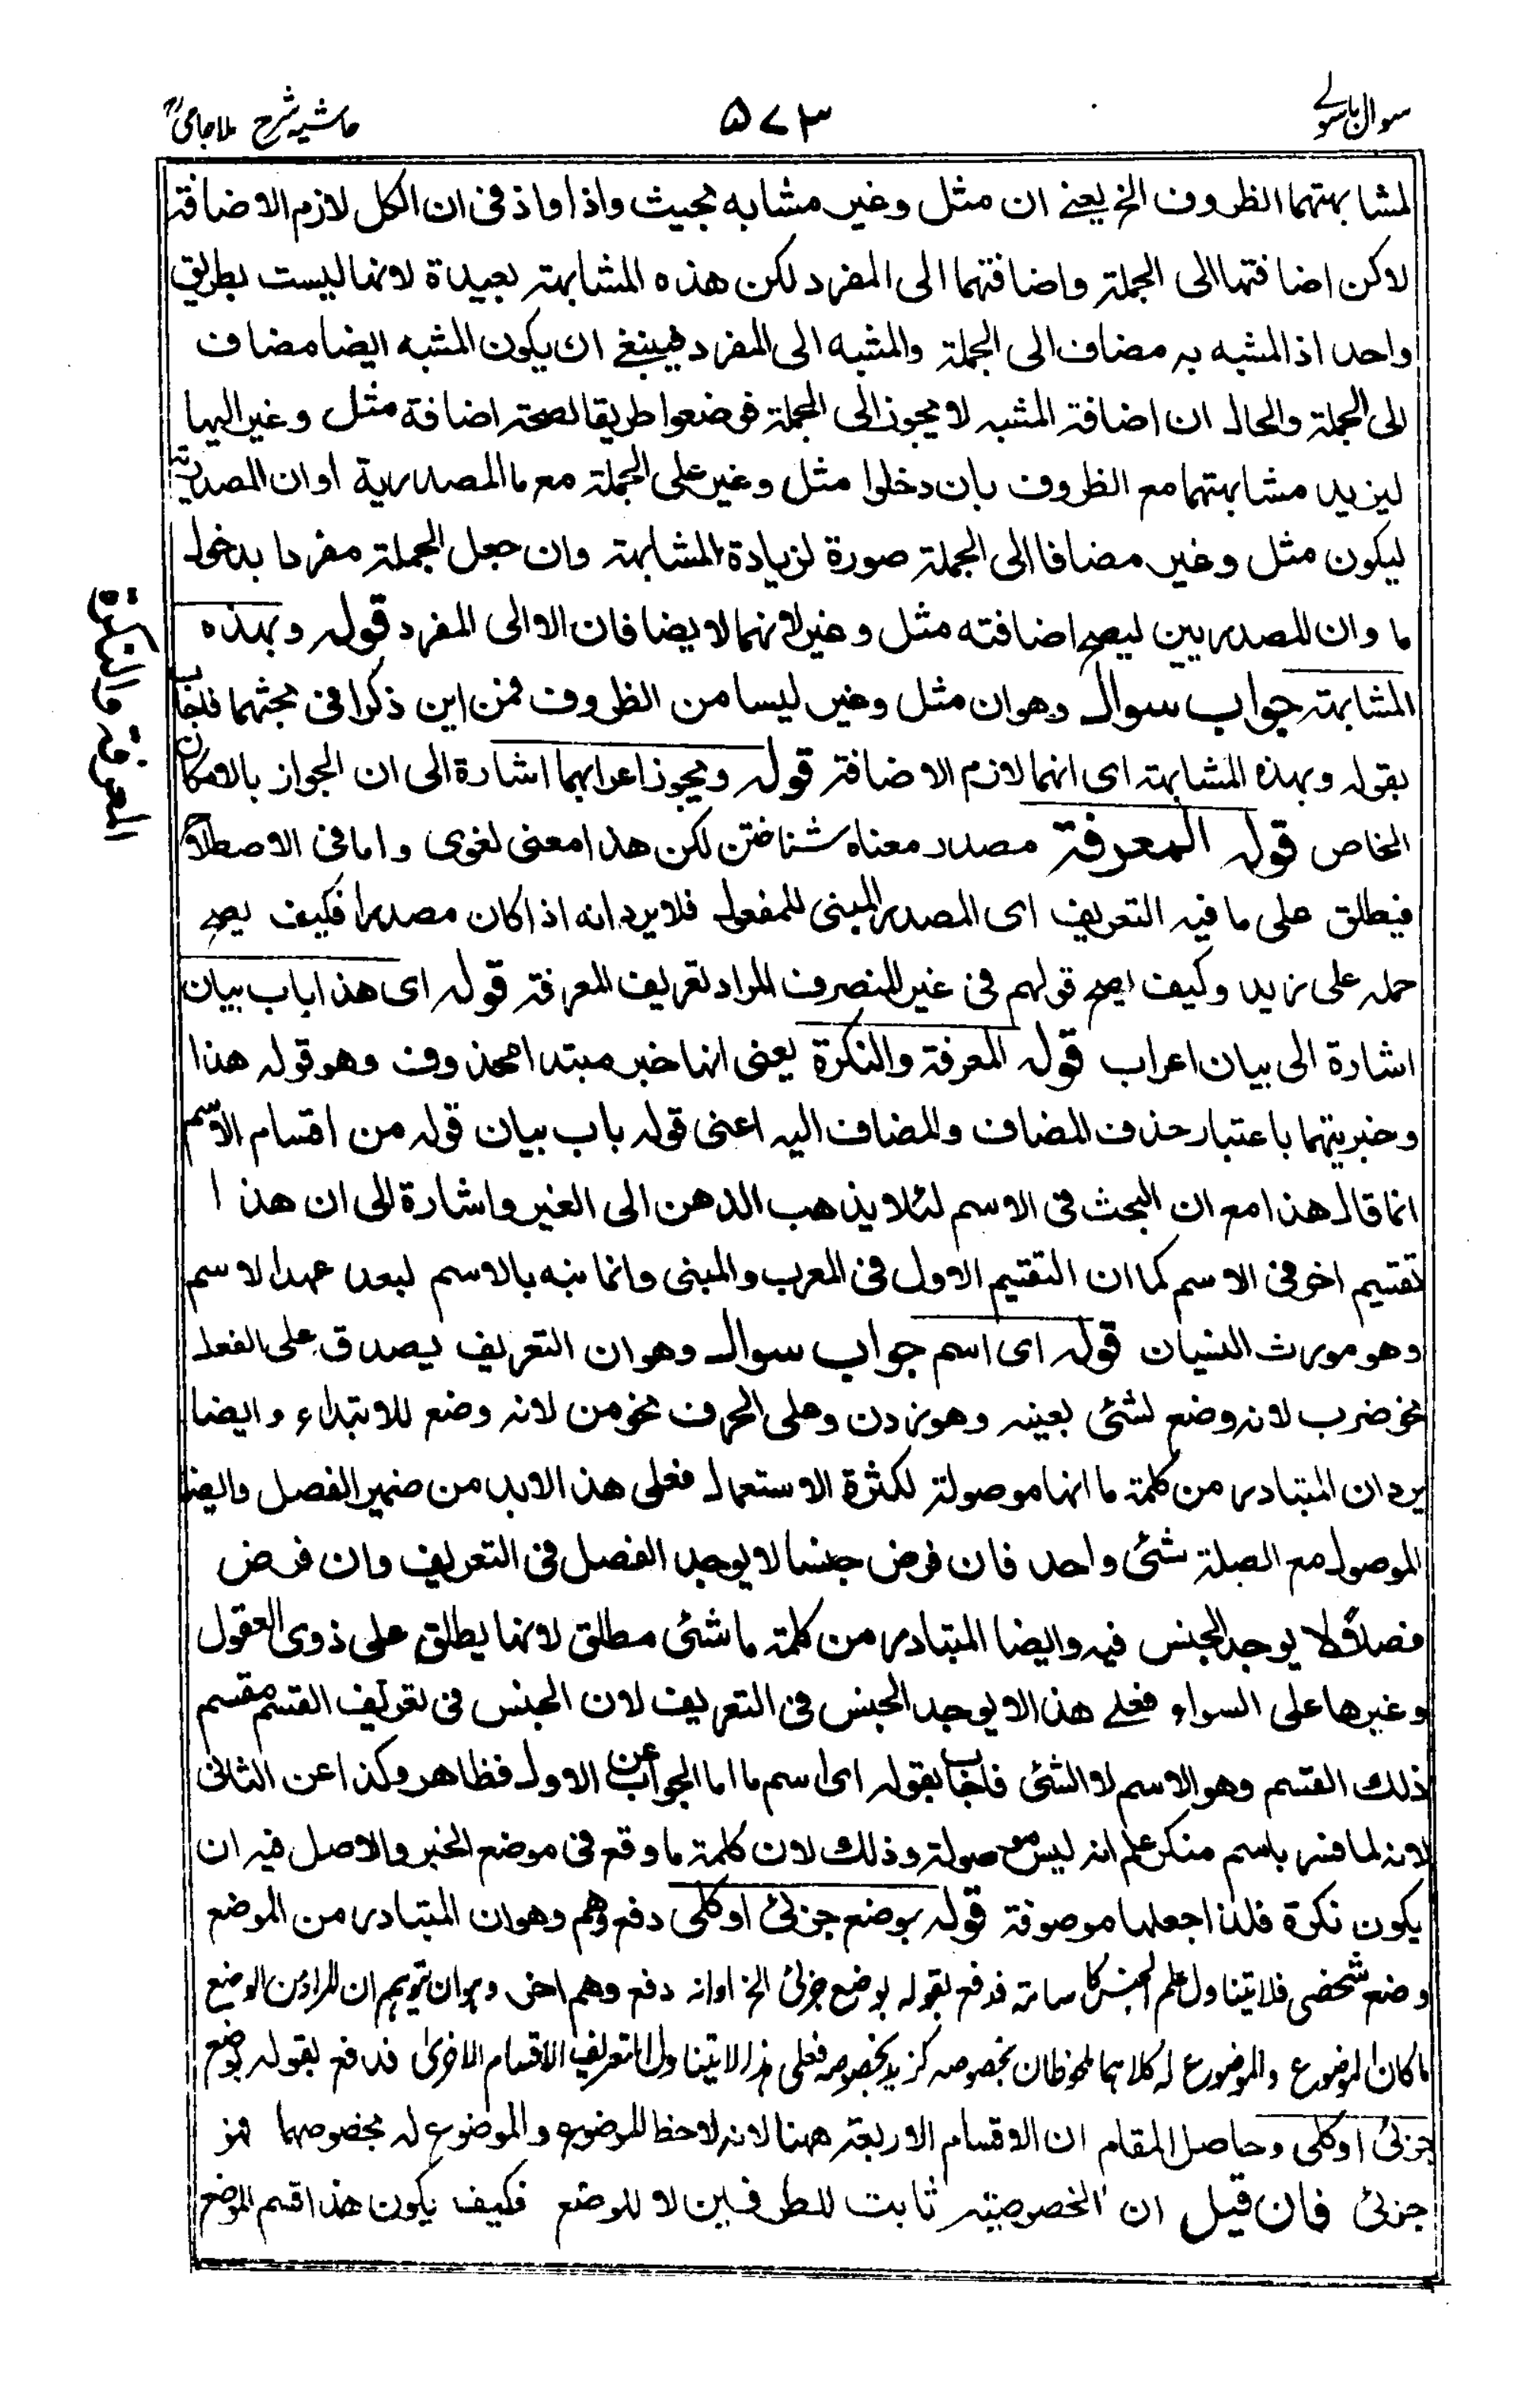 سوال باسولے
۵۷۳
حاشیہ شرح ملا جامیؒ
لمشابهتهما الظروف الخ يعنے ان مثل وغير مشابه بحيث واذا واذ فى ان الكل لازم الاضافة
لاكن اضافتها الى الجملة واضافتهما الى المفرد لكن هذه المشابهة بعيدة لانها ليست بطريق
واحد اذ المشبه به مضاف الى الجملة والمشبه الى المفرد فينبغے ان يكون المشبه ايضا مضاف
الى الجملة والحال ان اضافة المشبه لا يجوز الى الجملة فوضعوا طريقا لصحة اضافة مثل وغير اليها
ليزيد مشابهتهما مع الظروف بان دخلوا مثل وغير على الجملة مع ما المصدرية او ان المصدرية
ليكون مثل وغير مضافا الى الجملة صورة لزيادة المشابهة وان جعل الجملة مفردا بدخول
ما وان المصدريين ليصح اضافته مثل وغير لانهما لا يضافان الا الى المفرد قوله وبهذه
المشابهة جواب سوال وهو ان مثل وغير ليسا من الظروف فمن اين ذكرا فى بحثهما فاجاب
بقوله وبهذه المشابهة اى انهما لازم الاضافة قوله ويجوز اعرابهما اشارة الى ان الجواز بالامكان
الخاص قوله المعرفة مصدر معناه شناختن لكن هذا معنى لغوى واما فى الاصطلاح
فيطلق على ما فيه التعريف اى المصدر المبنى للمفعول فلا يرد انه اذا كان مصدرا فكيف يصح
حمله على زيد وكيف يصح قولهم فى غير المنصرف المراد تعريف المعرفة قوله اى هذا باب بيان
اشارة الى بيان اعراب قوله المعرفة والنكرة يعنى انها خبر مبتدا محذوف وهو قوله هذا
وخبريتهما باعتبار حذف المضاف والمضاف اليه اعنى قوله باب بيان قوله من اقسام الاسم
انما قال هذا مع ان البحث فى الاسم لئلا يذهب الذهن الى الغير واشارة الى ان هذا
تقسيم اخر فى الاسم كما ان التقسيم الاول فى المعرب والمبنى وانما نبه بالاسم لبعد عهد الاسم
وهو مورث النسيان قوله اى اسم جواب سوال وهو ان التعريف يصدق على الفعل
نحو ضرب لانه وضع لشئى بعينه وهو زدن وعلى الحرف نحو من لانه وضع للابتداء وايضا
يرد ان المتبادر من كلمة ما انها موصولة لكثرة الاستعمال فعلى هذا لابد من ضمير الفصل وايضا
الموصول مع الصلة شئى واحد فان فرض جنسا لا يوجد الفصل فى التعريف وان فرض
فصلا فلا يوجد الجنس فيه وايضا المتبادر من كلمة ما شئى مطلق لانها يطلق على ذوى العقول
وغيرها على السواء فعلے هذا لا يوجد الجنس فى التعريف لان الجنس فى تعريف القسم مقسم
ذلك القسم وهو الاسم لا الشئى فاجاب بقوله اى اسم ما اما الجواب عن الاول فظاهر وكذا عن الثانى
لانه لما فسر باسم منكر علم انه ليس موصولة وذلك لان كلمة ما وقع فى موضع الخبر والاصل فيه ان
يكون نكرة فلذا جعلها موصوفة قوله بوضع جزئى او كلى دفع وهم وهو ان المتبادر من الوضع
وضع شخصى فلا يتناول علم الجنس كاسامة فدفع بقوله بوضع جزئى الخ اوانه دفع وهم اخر وهو ان يتوهم ان المراد من الوضع
ما كان الموضوع والموضوع له كلاهما ملحوظان بخصوصه كزيد بخصوصه فعلى هذا لا يتناول التعريف الاقسام الاخرى فدفع بقوله بوضع
جزئى او كلى وحاصل المقام ان الاقسام الاربعة ههنا لانه لاحظ للموضوع والموضوع له بخصوصهما فهو
جزئى فان قيل ان الخصوصية ثابت للطرفين لا للوضع فكيف يكون هذا قسم الوضع
المعرفة والنكرة